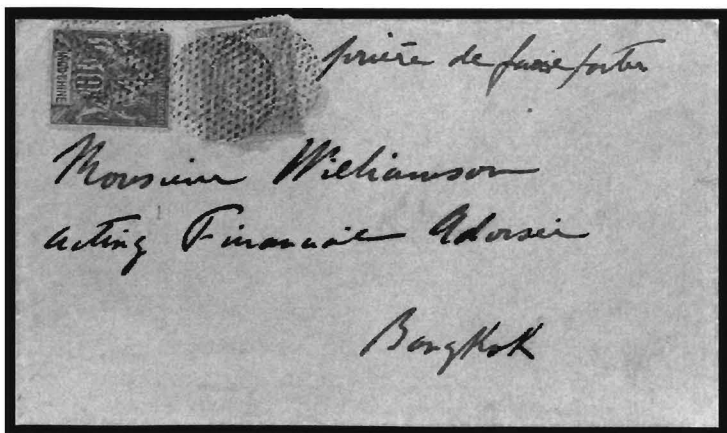 prière de faire porter
Monsieur Williamson
acting Financial Adviser
Bangkok
INDO-CHINE
10